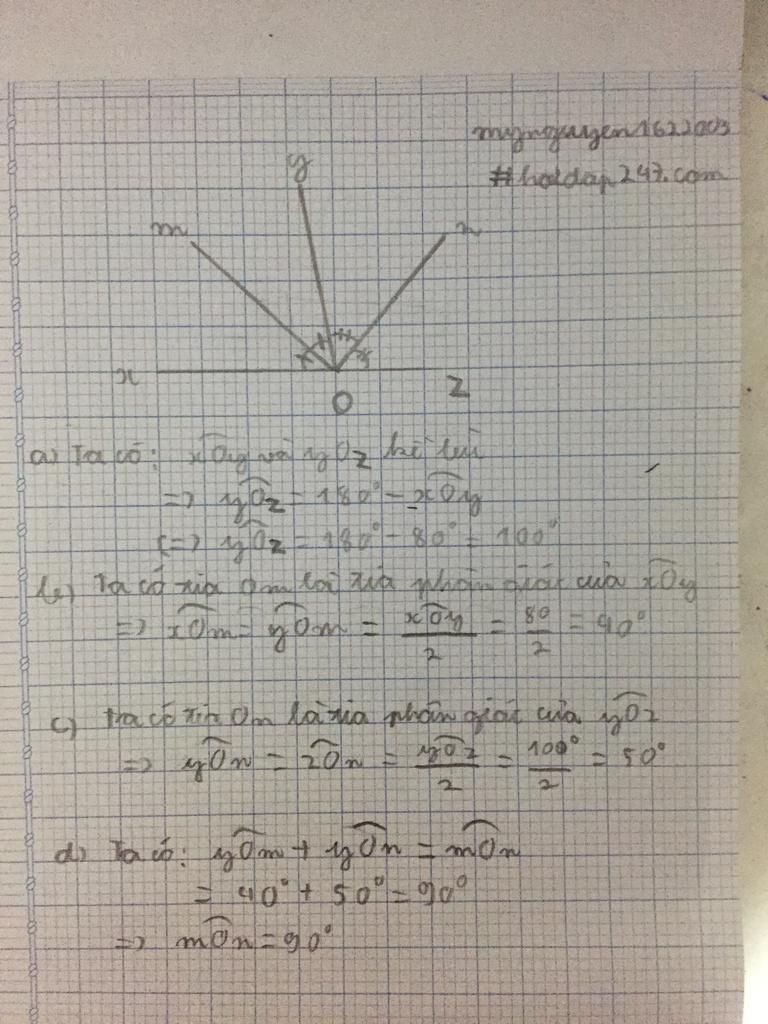 mynguyen1622003
#hoidap247.com
y
m
n
x
O
z
a) Ta có: xOy và yOz kề bù
=> yOz = 180° - xOy
(=> yOz = 180° - 80° = 100°
b) Ta có tia Om là tia phân giác của xOy
=> xOm = yOm = xOy/2 = 80/2 = 40°
c) Ta có tia On là tia phân giác của yOz
=> yOn = zOn = yOz/2 = 100°/2 = 50°
d) Ta có: yOm + yOn = mOn
= 40° + 50° = 90°
=> mOn = 90°